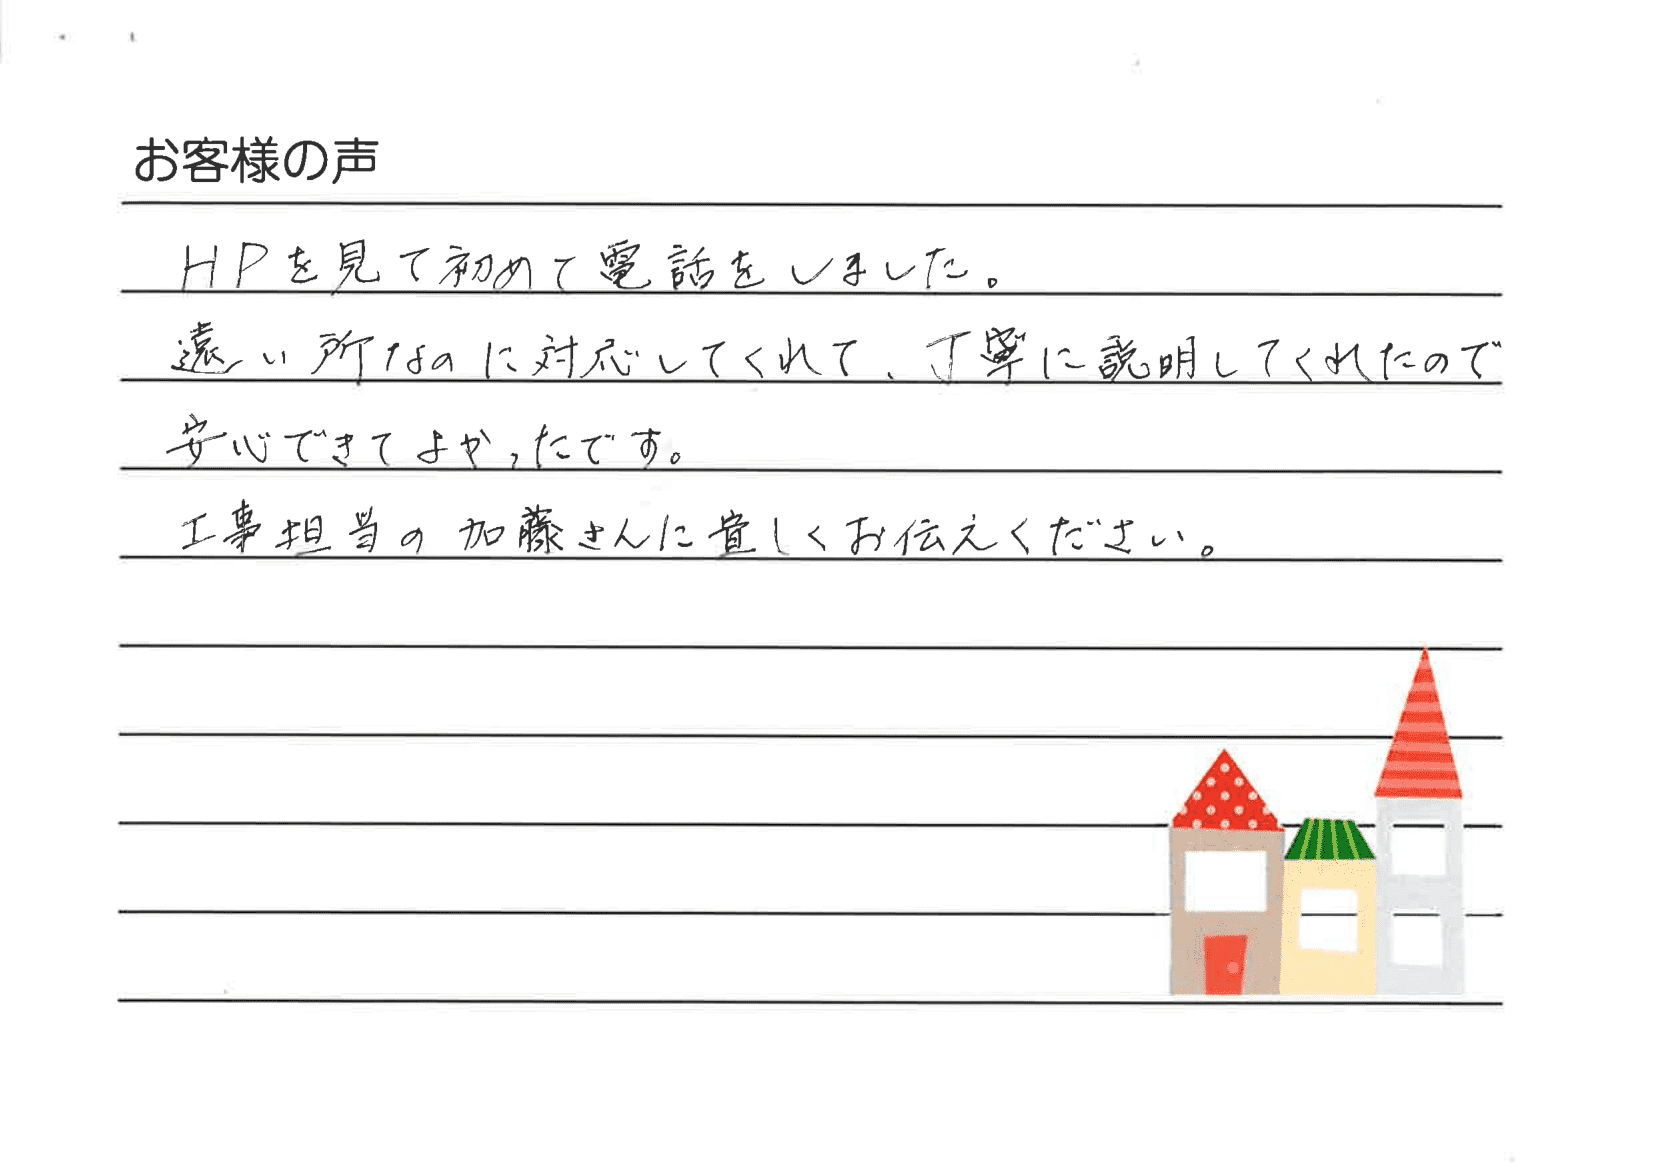 お客様の声
HPを見て初めて電話をしました。
遠い所なのに対応してくれて、丁寧に説明してくれたので
安心できてよかったです。
工事担当の加藤さんに宜しくお伝えください。